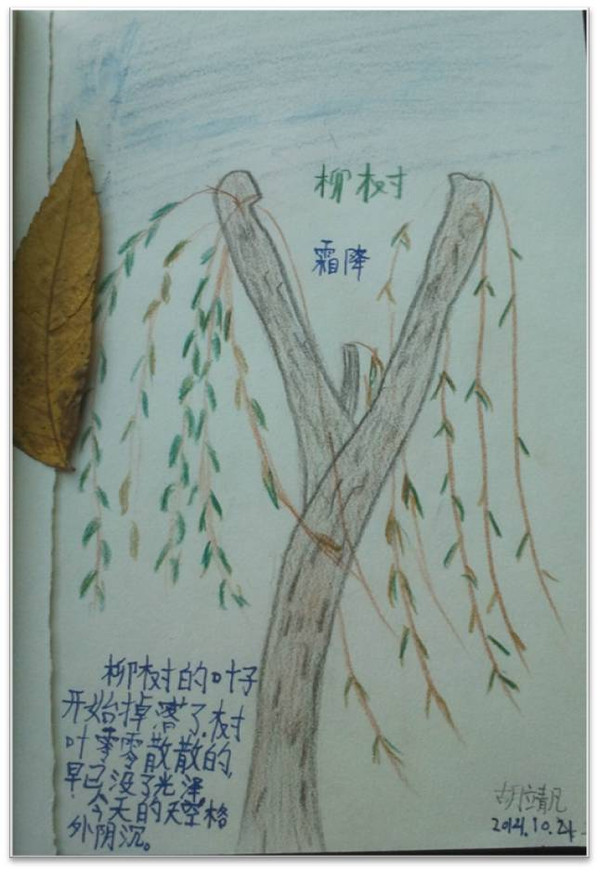 柳树
霜降
柳树的叶子
开始掉落了,树
叶零零散散的,
早已没了光泽。
今天的天空格
外阴沉。
胡靖凡